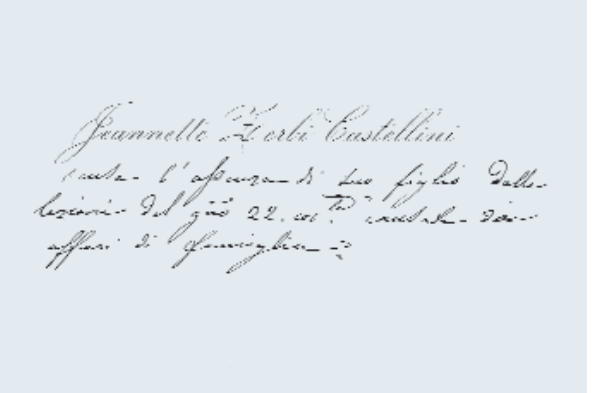 Jeannette Zerbi Castellini
scusa l'assenza di suo figlio dalle
lezioni del gno 22. corte causata da
affari di famiglia